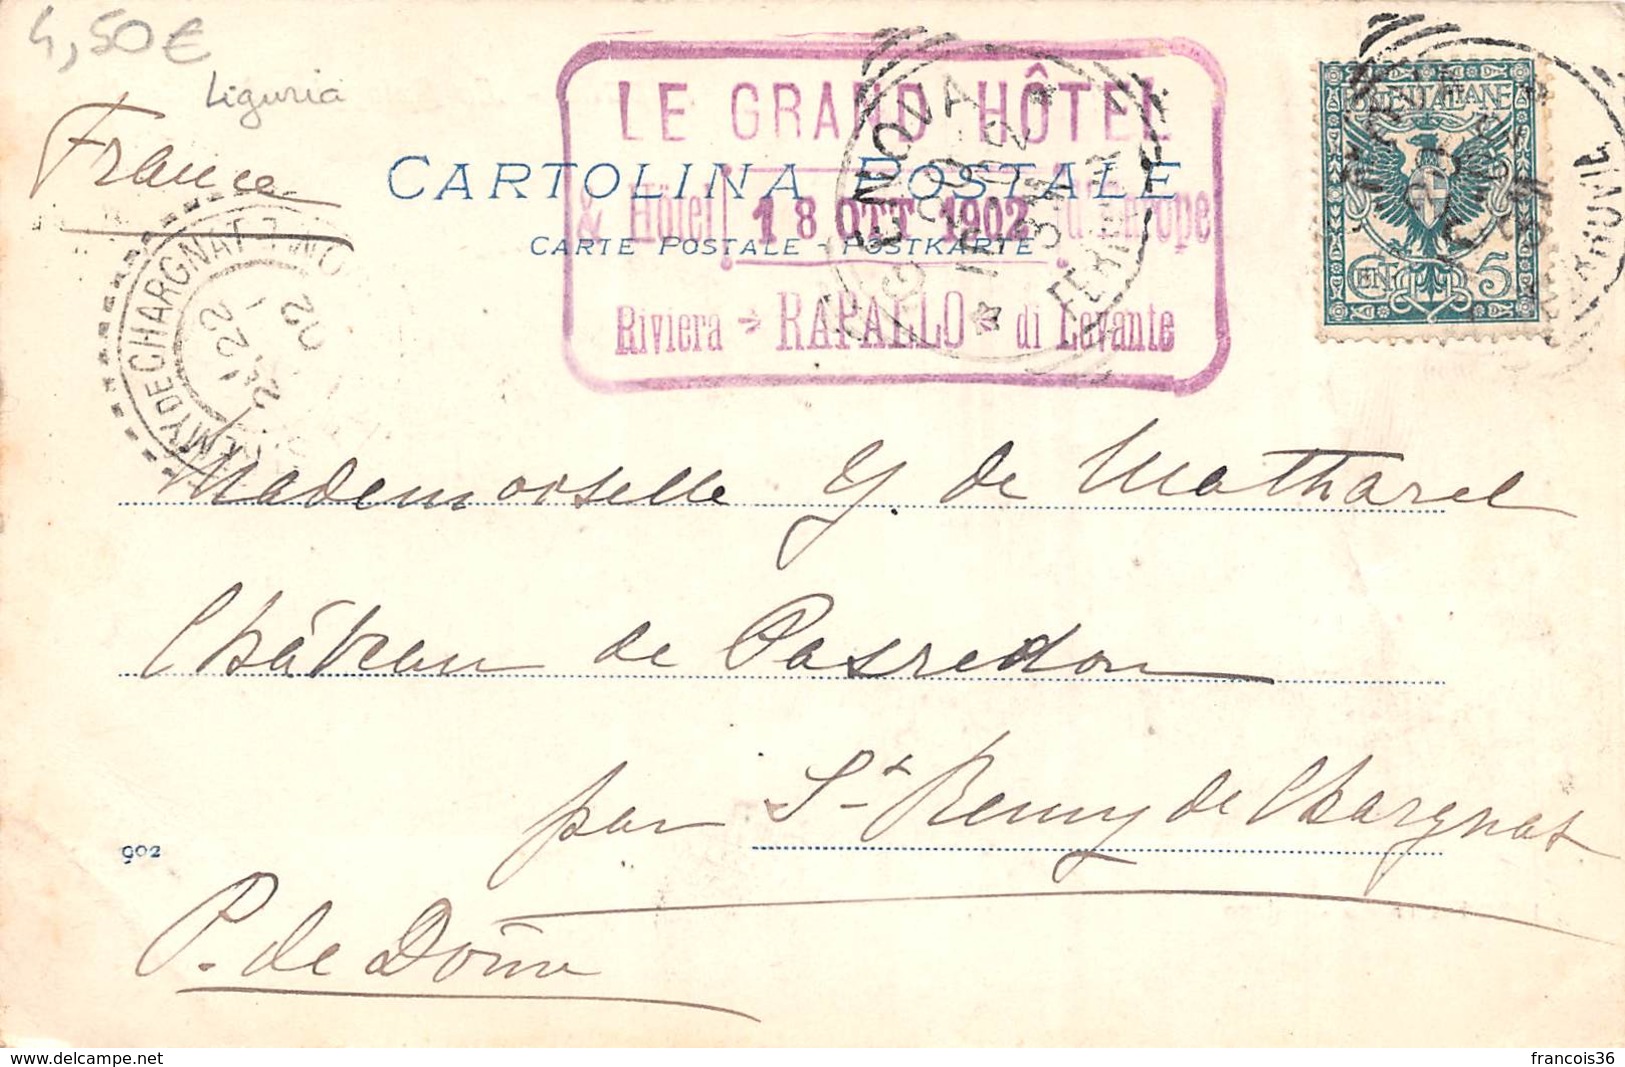 4,50€
Liguria
France
LE GRAND HÔTEL
CARTOLINA POSTALE
& Hôtel 18 OTT 1902 d'Europe
CARTE POSTALE - POSTKARTE
Riviera RAPALLO di Levante
GENOVA
FERROVIA
POSTE ITALIANE
CENT 5
MY DE CHARGNAT
22
02
Mademoiselle Y. de Matharel
Château de Pasredon
par St Remy de Chargnat
902
P. de Dôme
francois36